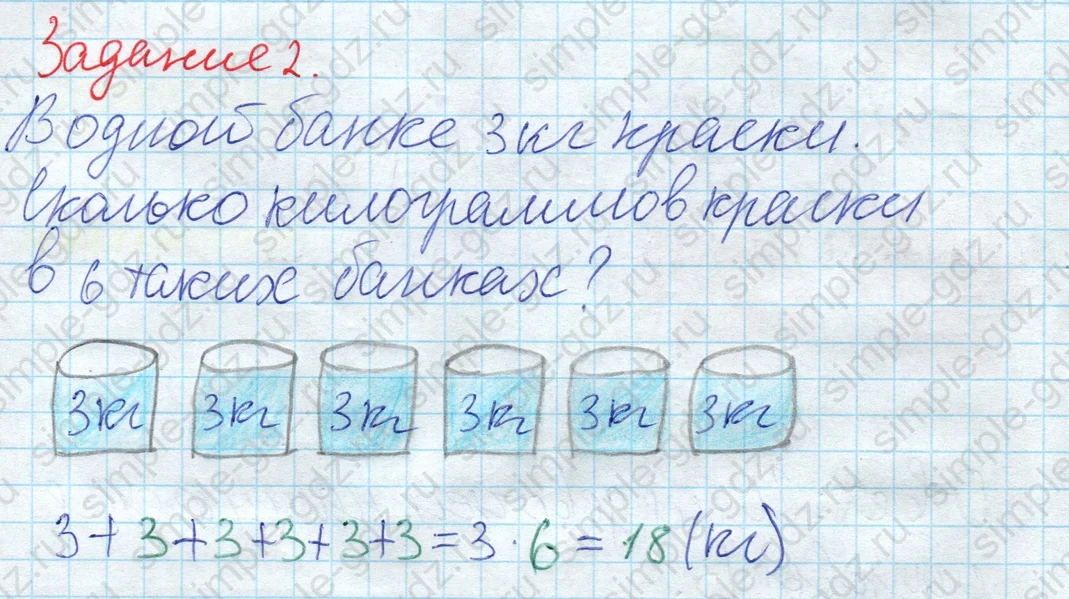 Задание 2.
В одной банке 3 кг краски.
Сколько килограммов краски
в 6 таких банках?
3 кг 3 кг 3 кг 3 кг 3 кг 3 кг
3 + 3 + 3 + 3 + 3 + 3 = 3 · 6 = 18 (кг)
simple-gdz.ru